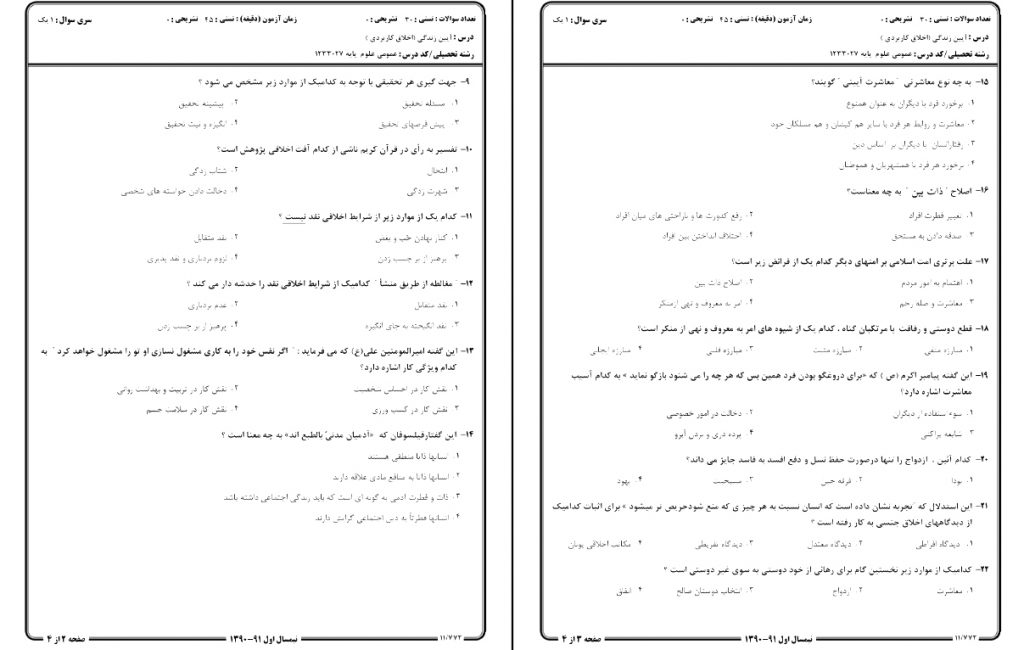 تعداد سوالات : تستی : ۳۰ تشریحی : ۰ زمان آزمون (دقیقه) : تستی : ۴۵ تشریحی : ۰ سری سوال : ۱ یک
درس : آیین زندگی (اخلاق کاربردی )
رشته تحصیلی/کد درس : عمومی علوم پایه ۱۲۳۳۰۲۷
۹- جهت گیری هر تحقیقی با توجه به کدامیک از موارد زیر مشخص می شود ؟
۱. مسئله تحقیق ۲. پیشینه تحقیق
۳. پیش فرضهای تحقیق ۴. انگیزه و نیت تحقیق
۱۰- تفسیر به رأی در قرآن کریم ناشی از کدام آفت اخلاقی پژوهش است؟
۱. انتحال ۲. شتاب زدگی
۳. شهرت زدگی ۴. دخالت دادن خواسته های شخصی
۱۱- کدام یک از موارد زیر از شرایط اخلاقی نقد نیست ؟
۱. کنار نهادن حُب و بغض ۲. نقد متقابل
۳. پرهیز از بر چسب زدن ۴. لزوم بردباری و نقد پذیری
۱۲- "مغالطه از طریق منشأ" کدامیک از شرایط اخلاقی نقد را خدشه دار می کند ؟
۱. نقد متقابل ۲. عدم بردباری
۳. نقد انگیخته به جای انگیزه ۴. پرهیز از بر چسب زدن
۱۳- این گفته امیرالمومنین علی(ع) که می فرماید : " اگر نفس خود را به کاری مشغول نسازی او تو را مشغول خواهد کرد " به
کدام ویژگی کار اشاره دارد؟
۱. نقش کار در احساس شخصیت ۲. نقش کار در تربیت و بهداشت روانی
۳. نقش کار در کسب ورزی ۴. نقش کار در سلامت جسم
۱۴- این گفتارفیلسوفان که «آدمیان مدنیّ بالطبع اند» به چه معنا است ؟
۱. انسانها ذاتا منطقی هستند
۲. انسانها ذاتا به منافع مادی علاقه دارند
۳. ذات و فطرت آدمی به گونه ای است که باید زندگی اجتماعی داشته باشد
۴. انسانها فطرتاً به دین اجتماعی گرایش دارند
نیمسال اول ۹۱-۱۳۹۰ صفحه ۲ از ۴
۱۱/۷۷۲
تعداد سوالات : تستی : ۳۰ تشریحی : ۰ زمان آزمون (دقیقه) : تستی : ۴۵ تشریحی : ۰ سری سوال : ۱ یک
درس : آیین زندگی (اخلاق کاربردی )
رشته تحصیلی/کد درس : عمومی علوم پایه ۱۲۳۳۰۲۷
۱۵- به چه نوع معاشرتی "معاشرت آیینی" گویند؟
۱. برخورد فرد با دیگران به عنوان همنوع
۲. معاشرت و روابط هر فرد با سایر هم کیشان و هم مسلکان خود
۳. رفتارانسان با دیگران بر اساس دین
۴. برخورد هر فرد با همشهریان و هموطنان
۱۶- اصلاح "ذات بین " به چه معناست؟
۱. تغییر فطرت افراد ۲. رفع کدورت ها و ناراحتی های میان افراد
۳. صدقه دادن به مستحق ۴. اختلاف انداختن بین افراد
۱۷- علت برتری امت اسلامی بر امتهای دیگر کدام یک از فرائض زیر است؟
۱. اهتمام به امور مردم ۲. اصلاح ذات بین
۳. معاشرت و صله رحم ۴. امر به معروف و نهی ازمنکر
۱۸- قطع دوستی و رفاقت با مرتکبان گناه ، کدام یک از شیوه های امر به معروف و نهی از منکر است؟
۱. مبارزه منفی ۲. مبارزه مثبت ۳. مبارزه قلبی ۴. مبارزه ایجابی
۱۹- این گفته پیامبر اکرم (ص ) که «برای دروغگو بودن فرد همین بس که هر چه را می شنود بازگو نماید » به کدام آسیب
معاشرت اشاره دارد؟
۱. سوء ستفاده از دیگران ۲. دخالت در امور خصوصی
۳. شایعه پراکنی ۴. پرده دری و بردن آبرو
۲۰- کدام آئین ، ازدواج را تنها درصورت حفظ نسل و دفع افسد به فاسد جایز می داند؟
۱. بودا ۲. فرقه جین ۳. مسیحیت ۴. یهود
۲۱- این استدلال که "تجربه نشان داده است که انسان نسبت به هر چیز ی که منع شودحریص تر میشود » برای اثبات کدامیک
از دیدگاههای اخلاق جنسی به کار رفته است ؟
۱. دیدگاه افراطی ۲. دیدگاه معتدل ۳. دیدگاه تفریطی ۴. مکاتب اخلاقی یونان
۲۲- کدامیک از موارد زیر نخستین گام برای رهائی از خود دوستی به سوی غیر دوستی است ؟
۱. معاشرت ۲. ازدواج ۳. انتخاب دوستان صالح ۴. انفاق
نیمسال اول ۹۱-۱۳۹۰ صفحه ۳ از ۴
۱۱/۷۷۲